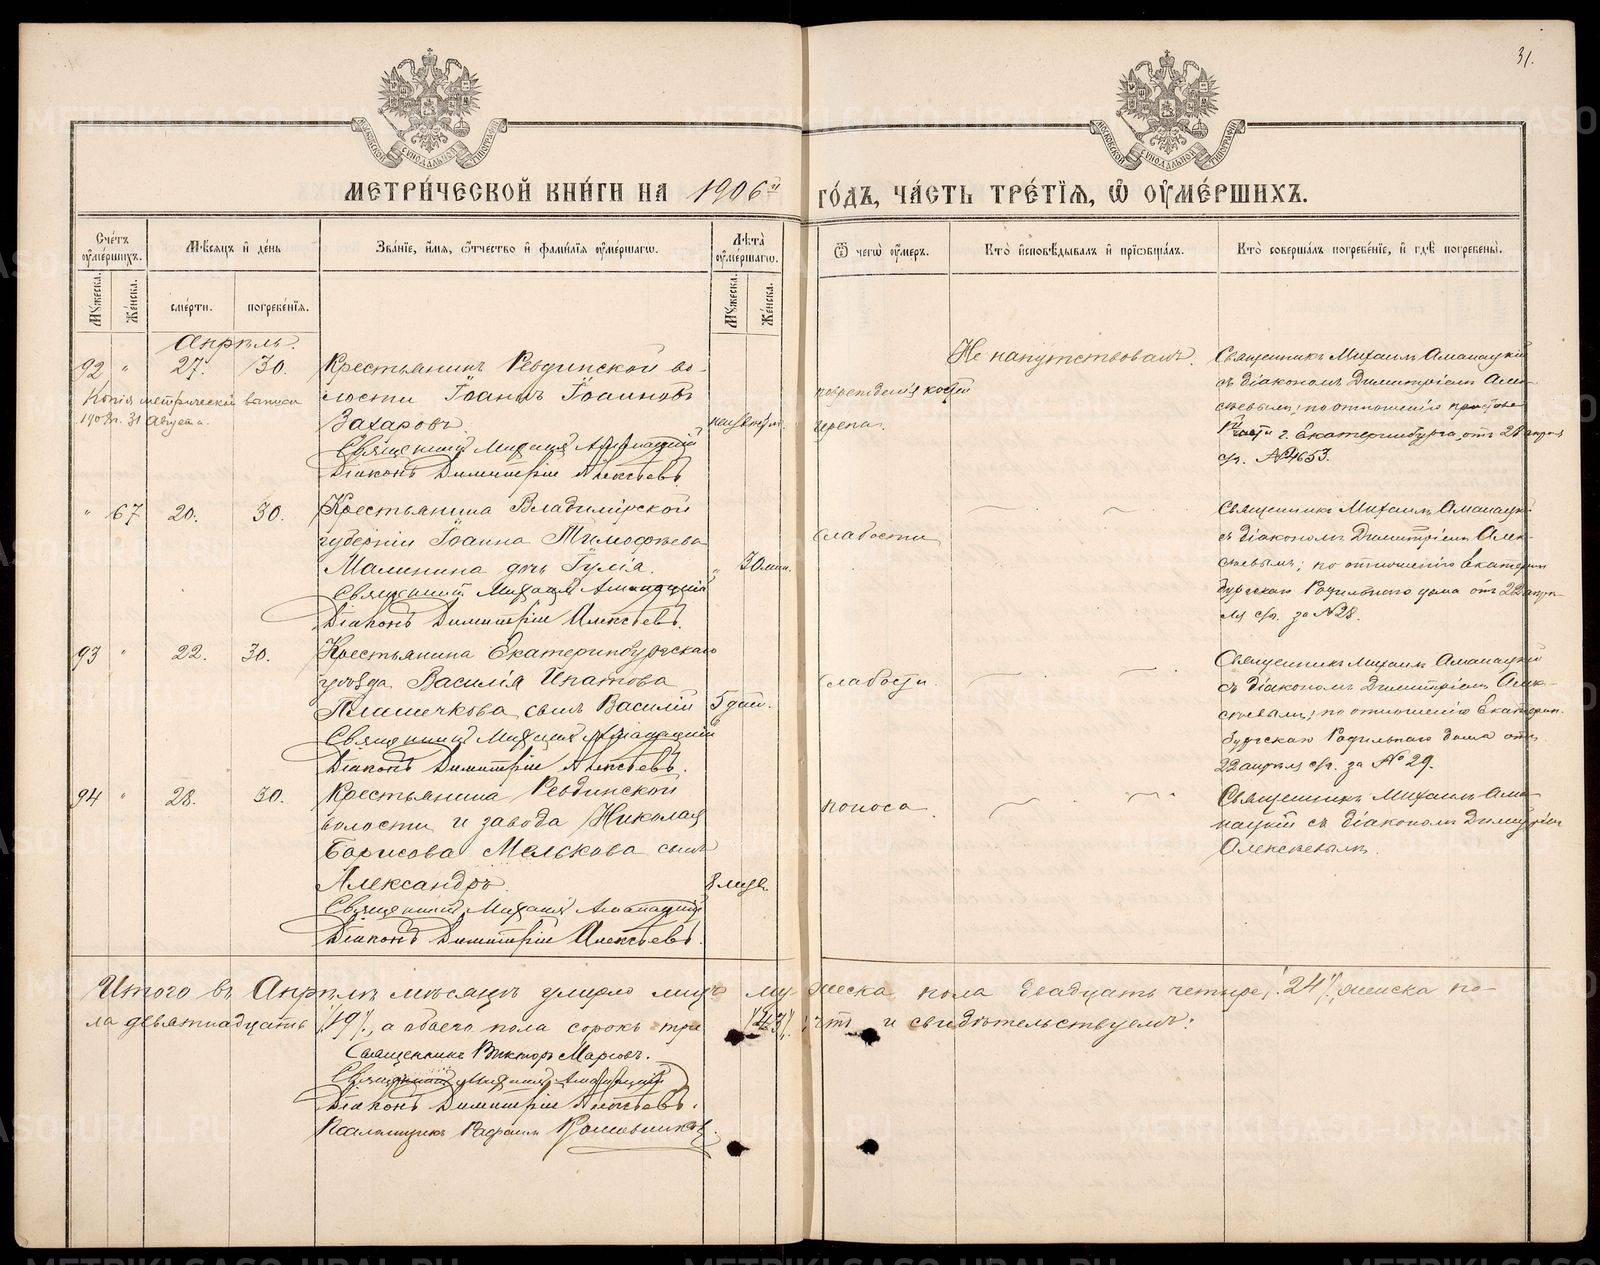 31.
МОСКОВСКОЙ СѴНОДАЛЬНОЙ ТИПОГРАФІИ
МОСКОВСКОЙ СѴНОДАЛЬНОЙ ТИПОГРАФІИ
МЕТРИ́ЧЕСКОЙ КНИ́ГИ НА 1906й ГО́ДЪ, ЧА́СТЬ ТРЕ́ТІѦ, Ѿ ОУМЕ́РШИХЪ.
Сче́тъ оуме́ршихъ.
Мꙋжеска.
Же́нска.
Мѣ́сяцъ и де́нь
сме́рти.
погребе́нїѧ.
Зва́нїе, и́мѧ, ѻ́тчество и фами́лїѧ оуме́ршагѡ.
Лѣ́та оуме́ршагѡ.
Мꙋжеска.
Же́нска.
Ѿ чегѡ̀ оу́меръ.
Кто̀ и҆сповѣ́дывалъ и҆ прїѡбща́лъ.
Кто̀ соверша́лъ погребе́нїе, и҆ гдѣ̀ погребены̀.
Апрѣль.
92 " 27. 30.
Копія метрической выписи
1908г. 31 Августа.
Крестьянинъ Ревдинской во-
лости Іоаннъ Іоанновъ
Захаровъ.
неизвѣстн.
Священникъ Михаилъ Аманацкій
Діаконъ Димитрій Алексѣевъ.
поврежденія костей
черепа.
Не напутствованъ.
Священникъ Михаилъ Аманацкій
съ діакономъ Димитріемъ Алек-
сѣевымъ; по отношенію пристава
1й части г. Екатеринбурга, отъ 28 апрѣля
с/г. №4653.
" 67 20. 30.
Крестьянина Владимірской
губерніи Іоанна Тимофѣева
Малинина дочь Іулія.
" 30 мин.
Священникъ Михаилъ Аманацкій
Діаконъ Димитрій Алексѣевъ.
слабости
Священникъ Михаилъ Аманацкій
съ діакономъ Димитріемъ Алек-
сѣевымъ; по отношенію Екатерин
бургскаго Родильнаго дома отъ 22 апрѣ-
ля с/г. за №28.
93 " 22. 30.
Крестьянина Екатеринбургскаго
уѣзда Василія Ипатова
Плашечкова сынъ Василій
5 дней.
Священникъ Михаилъ Аманацкій
Діаконъ Димитрій Алексѣевъ.
слабости.
Священникъ Михаилъ Аманацкій
съ діакономъ Димитріемъ Алек-
сѣевымъ; по отношенію Екатерин-
бургскаго Родильнаго дома отъ
22 апрѣля с/г. за №29.
94 " 28. 30.
Крестьянина Ревдинской
волости и завода Николая
Борисова Мелькова сынъ
Александръ.
8 мѣся.
Священникъ Михаилъ Аманацкій
Діаконъ Димитрій Алексѣевъ.
поноса
Священникъ Михаилъ Ама-
нацкій съ діакономъ Димитріемъ
Алексѣевымъ.
Итого въ Апрѣлѣ мѣсяцѣ умерло лицъ му-жеска пола двадцать четыре, /24/, женска по-
ла девятнадцать /19/, а обоего пола сорокъ три /43/; въ чемъ и свидѣтельствуемъ:
Священникъ Викторъ Марковъ.
Священникъ Михаилъ Аманацкій
Діаконъ Димитрій Алексѣевъ.
Псаломщикъ